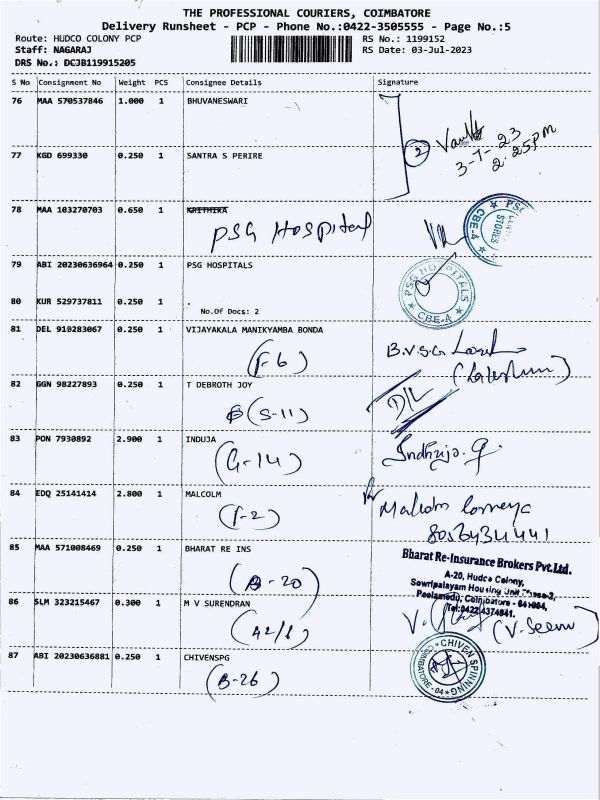 THE PROFESSIONAL COURIERS, COIMBATORE
Delivery Runsheet - PCP - Phone No.:0422-3505555 - Page No.:5
Route: HUDCO COLONY PCP RS No.: 1199152
Staff: NAGARAJ RS Date: 03-Jul-2023
DRS No.: DCJB119915205
S No Consignment No Weight PCS Consignee Details Signature
76 MAA 570537846 1.000 1 BHUVANESWARI
3-7-23
2.25pm
2
77 KGD 699330 0.250 1 SANTRA S PERIRE
78 MAA 103270703 0.650 1 KRITHIKA
PSG Hospital
STORES
CBE-4
79 ABI 20230636964 0.250 1 PSG HOSPITALS
PSG HOSPITALS
CBE-4
80 KUR 529737811 0.250 1
No.Of Docs: 2
81 DEL 910283067 0.250 1 VIJAYAKALA MANIKYAMBA BONDA
(F-6) B.V.S.G.
82 GGN 98227893 0.250 1 T DEBROTH JOY
(S-11) D/L
83 PON 7930892 2.900 1 INDUJA
(G-14)
84 EDQ 25141414 2.800 1 MALCOLM
(F-2)
85 MAA 571008469 0.250 1 BHARAT RE INS
(A-20)
Bharat Re-Insurance Brokers Pvt.Ltd.
A-20, Hudco Colony,
Sowripalayam Housing Unit
Peelamedu, Coimbatore - 641004,
Tel:0422 4374841.
86 SLM 323215467 0.300 1 M V SURENDRAN
(42/1) (V. Seenu)
87 ABI 20230636881 0.250 1 CHIVENSPG
(B-26)
CHIVEN SPINNING
COIMBATORE - 04